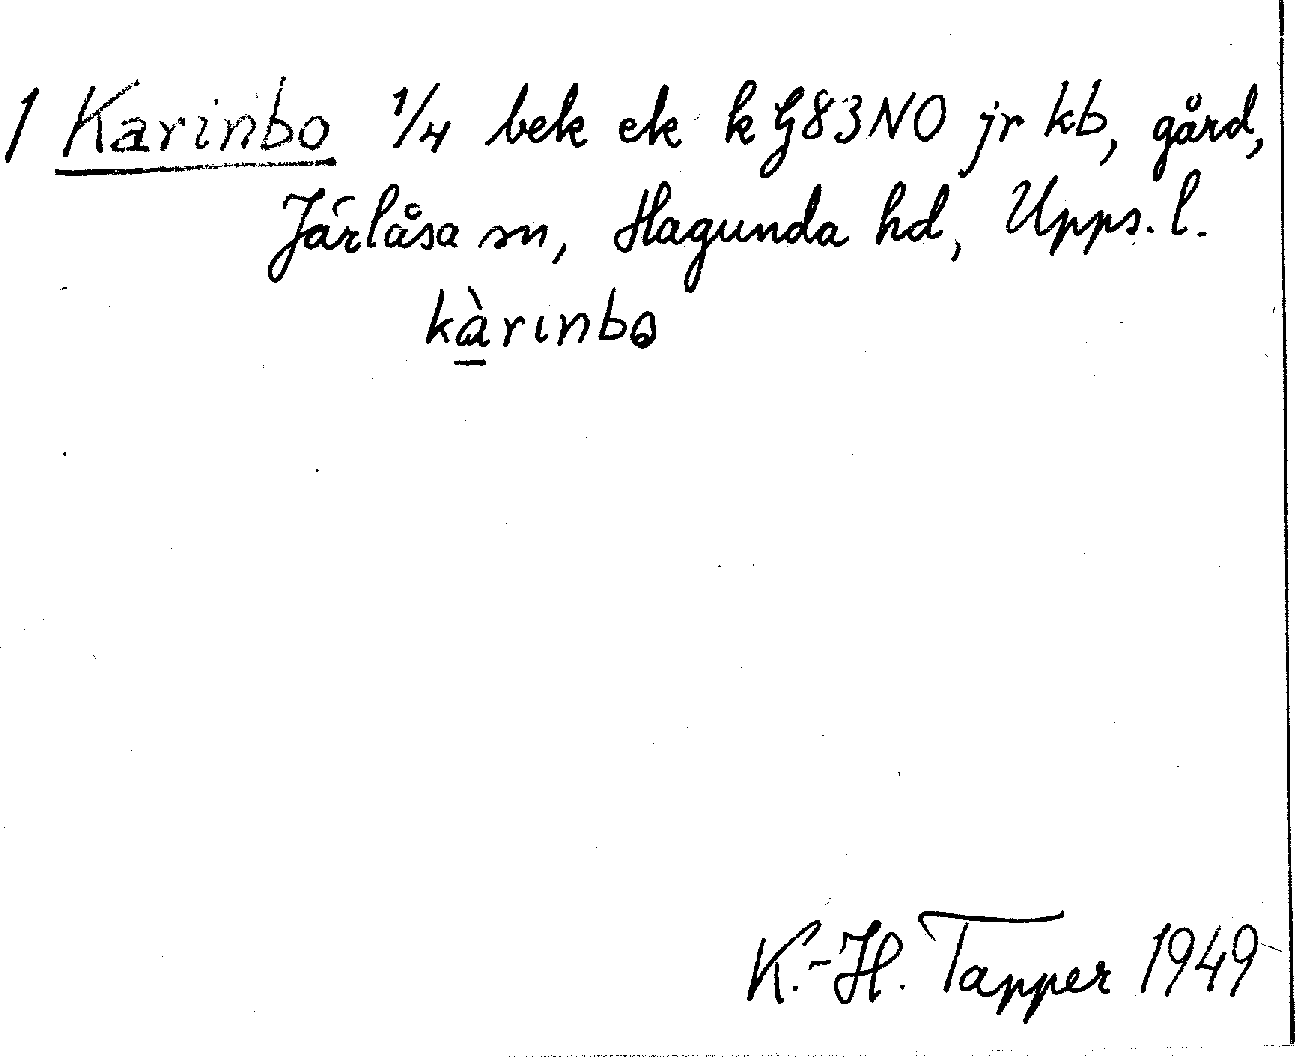 1 Karinbo 1/4 bek ek k G83NO jr kb, gård,
Järlåsa sn, Hagunda hd, Upps. l.
kàrınbo
K.-H. Tapper 1949